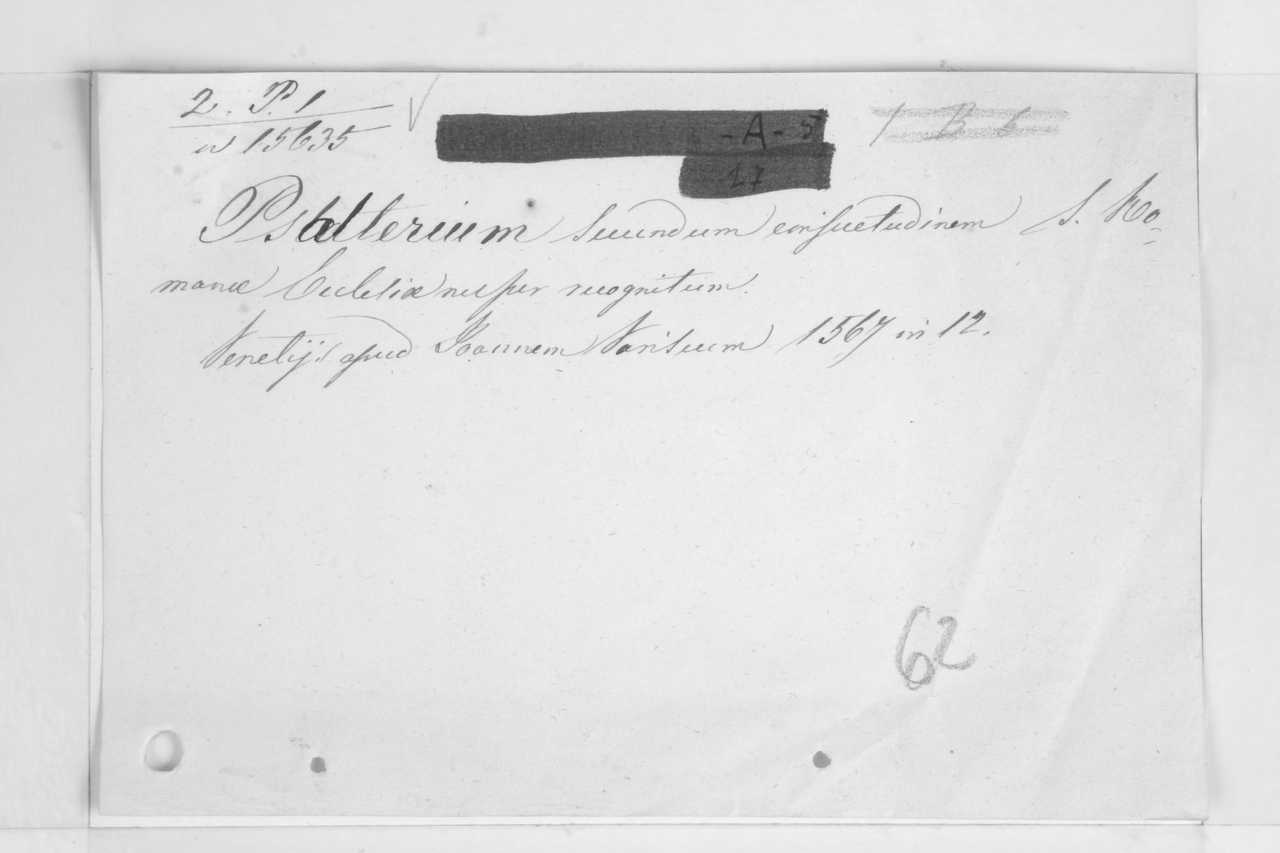 2. P. 1
15635
-A- 5
17
1 B 6
Psalterium secundum consuetudinem S. Ro-
manæ Ecclesiæ nuper recognitum.
Venetijs apud Joannem Variscum 1567 in 12.
62